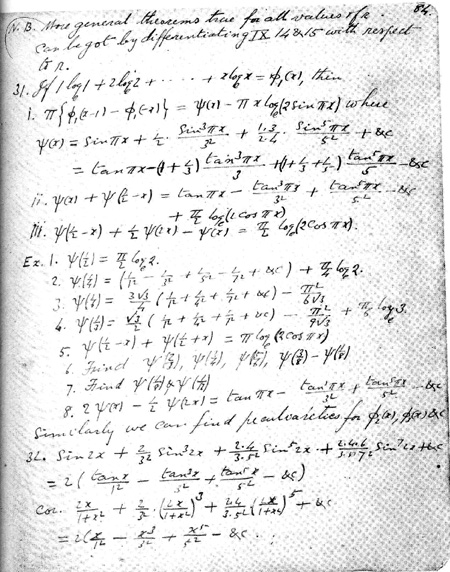 84.
N.B. More general theorems true for all values of r.
can be got by differentiating IX 14 & 15 with respect
to r.
31. If 1 log 1 + 2 log 2 + ...... + x log x = φ₁(x), then
i. π{φ₁(x-1) - φ₁(-x)} = ψ(x) - πx logₑ(2 sin πx) where
ψ(x) = sin πx + 1/2 · sin³πx/3² + 1·3/2·4 · sin⁵πx/5² + &c
= tan πx - (1 + 1/3) tan³πx/3 + (1 + 1/3 + 1/5) tan⁵πx/5 - &c
ii. ψ(x) + ψ(1/2 - x) = tan πx - tan³πx/3² + tan⁵πx/5² - &c
+ π/2 logₑ(2 cos πx)
iii. ψ(1/2 - x) + 1/2 ψ(2x) - ψ(x) = π/2 logₑ(2 cos πx).
Ex. 1. ψ(1/2) = π/2 logₑ 2.
2. ψ(1/4) = (1/1² - 1/3² + 1/5² - 1/7² + &c) + π/ log 2.
3. ψ( ) = 3√3/ ( + &c) - π²/6√3
4. ψ( ) = √3/2 ( + &c) - π²/9√3 + π/ logₑ 3.
5. ψ(1/2 - x) + ψ(1/2 + x) = π logₑ(2 cos πx)
6. Find ψ( ), ψ( ), ψ( ), ψ( ) - ψ( )
7. Find ψ( ) & ψ( )
8. 2ψ(x) - 1/2 ψ(2x) = tan πx - tan³πx/3² + tan⁵πx/5² - &c
Similarly we can find peculiarities for φ₂(x), φ₃(x) &c
32. Sin 2x + 2/3² Sin³2x + 2·4/3·5² Sin⁵2x + 2·4·6/3·5·7² Sin⁷2x + &c
= 2(tan x/1² - tan³x/3² + tan⁵x/5² - &c)
Cor. 2x/1+x² + 2/3² · (2x/1+x²)³ + 2·4/3·5² (2x/1+x²)⁵ + &c
= 2(x/1² - x³/3² + x⁵/5² - &c.